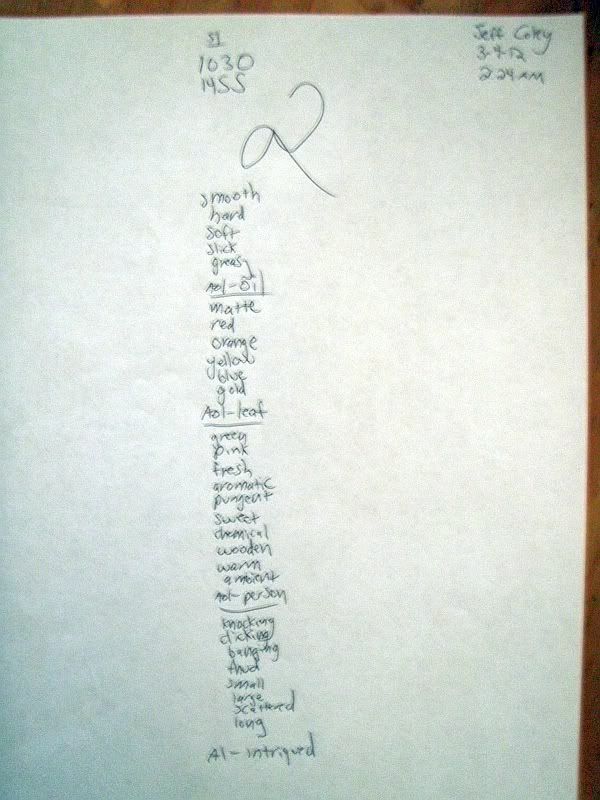 S1
1030
1455
Jeff Coley
3-9-12
2:24 AM
smooth
hard
soft
slick
greasy
Aol-oil
matte
red
orange
yellow
blue
gold
Aol-leaf
green
pink
fresh
aromatic
pungent
sweet
chemical
wooden
warm
ambient
Aol-person
knocking
clicking
banging
thud
small
large
scattered
long
AI-intrigued